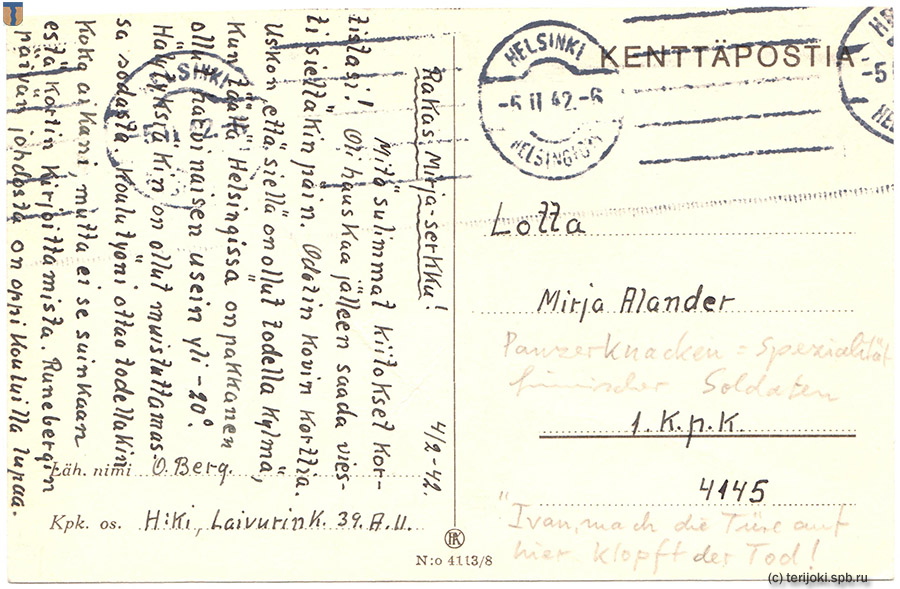 Rakas Mirja-serkku!
4/2-42.
Mitä sulimmat kiitokset kor-
tistasi! Oli hauskaa jälleen saada vies-
ti sielläkinpäin. Odotin kovin korttia.
Uskon että siellä on ollut todella kylmä,
Kun täällä Helsingissä on pakkanen
ollut hätyinaisen usein yli -20°.
Hälytyksiäkin on ollut muistuttamas-
sa sodasta. Koulutyöni ottaa todellakin
koko aikani, mutta ei se suinkaan
estä kortin kirjoittamista. Runebergin
päivän johdosta on oppikouluilla lupaa.
Läh. nimi O. Berg.
Kpk. os. H:ki, Laivurink. 39. A. 11.
N:o 4113/8
KENTTÄPOSTIA
HELSINKI
-5 II 42.-6
HELSINGFORS
HELSINKI
-5
Lotta
Mirja Alander
Panzerknacken = Spezialität
finnischer Soldaten
1. K.p.K.
4145
"Ivan, mach die Türe auf
hier klopft der Tod!
(c) terijoki.spb.ru